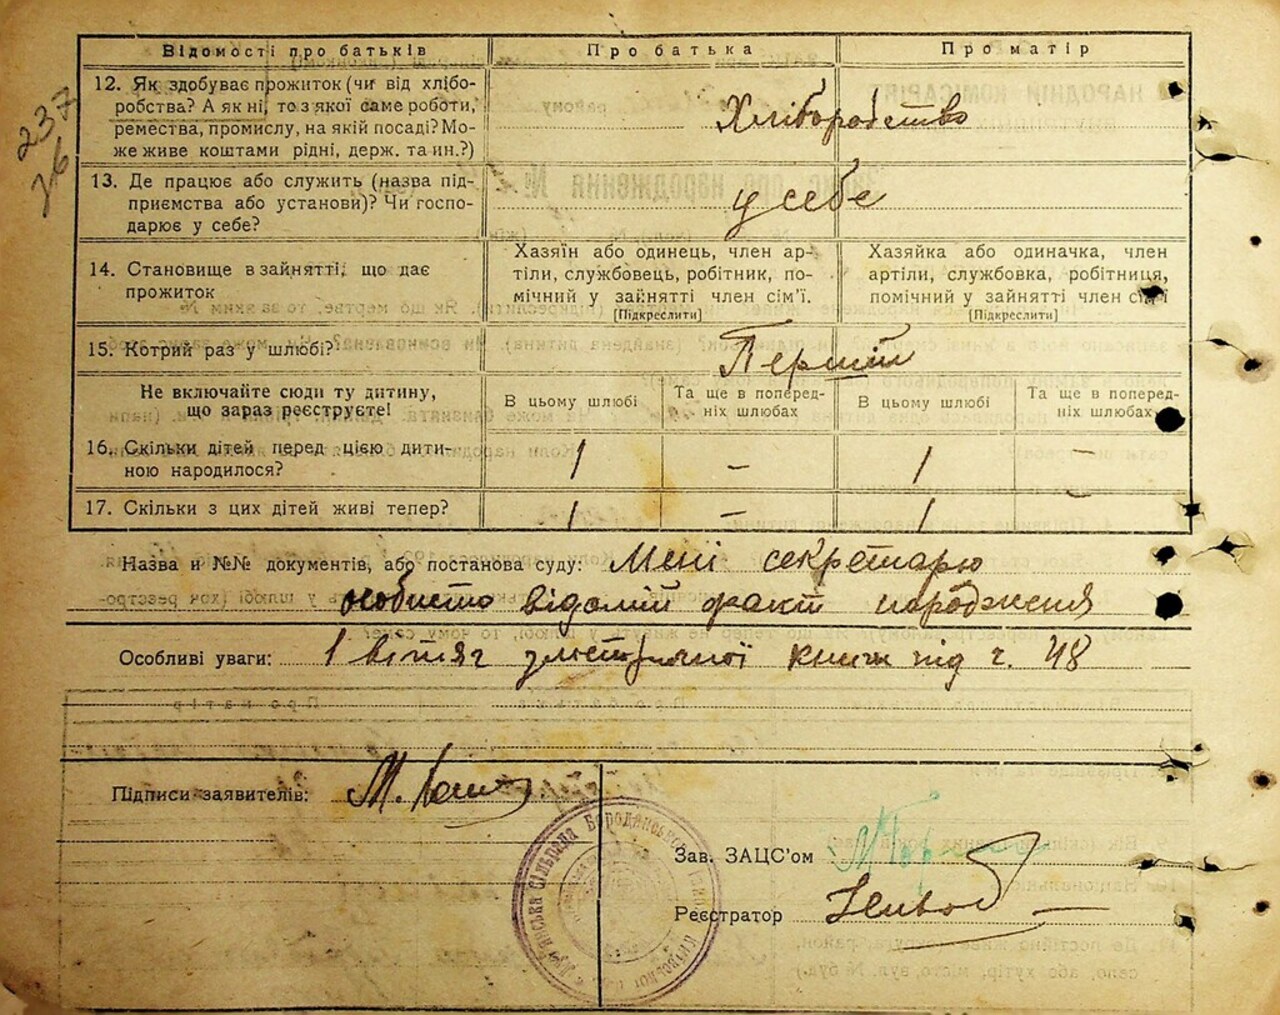 237
76
Відомості про батьків
Про батька
Про матір
12. Як здобуває прожиток (чи від хлібо-
робства? А як ні, то з якої саме роботи,
ремества, промислу, на якій посаді? Мо-
же живе коштами рідні, держ. та ин.?)
Хліборобство
13. Де працює або служить (назва під-
приємства або установи)? Чи госпо-
дарює у себе?
у себе
14. Становище в зайнятті, що дає
прожиток
Хазяїн або одинець, член ар-
тіли, службовець, робітник, по-
мічний у зайнятті член сім'ї.
[Підкреслити]
Хазяйка або одиначка, член
артіли, службовка, робітниця,
помічний у зайнятті член сім'ї
[Підкреслити]
15. Котрий раз у шлюбі?
Перший
Не включайте сюди ту дитину,
що зараз реєструєте!
В цьому шлюбі
Та ще в поперед-
ніх шлюбах
В цьому шлюбі
Та ще в поперед-
ніх шлюбах
16. Скільки дітей перед цією дити-
ною народилося?
1 – 1 –
17. Скільки з цих дітей живі тепер?
1 – 1
Назва и №№ документів, або постанова суду: Мені секретарю
особисто відомий факт народження
Особливі уваги: 1 витяг з книж під ч. 48
Підписи заявителів: М.
Зав. ЗАЦС'ом
Реєстратор
сільрада Бородянського Київської